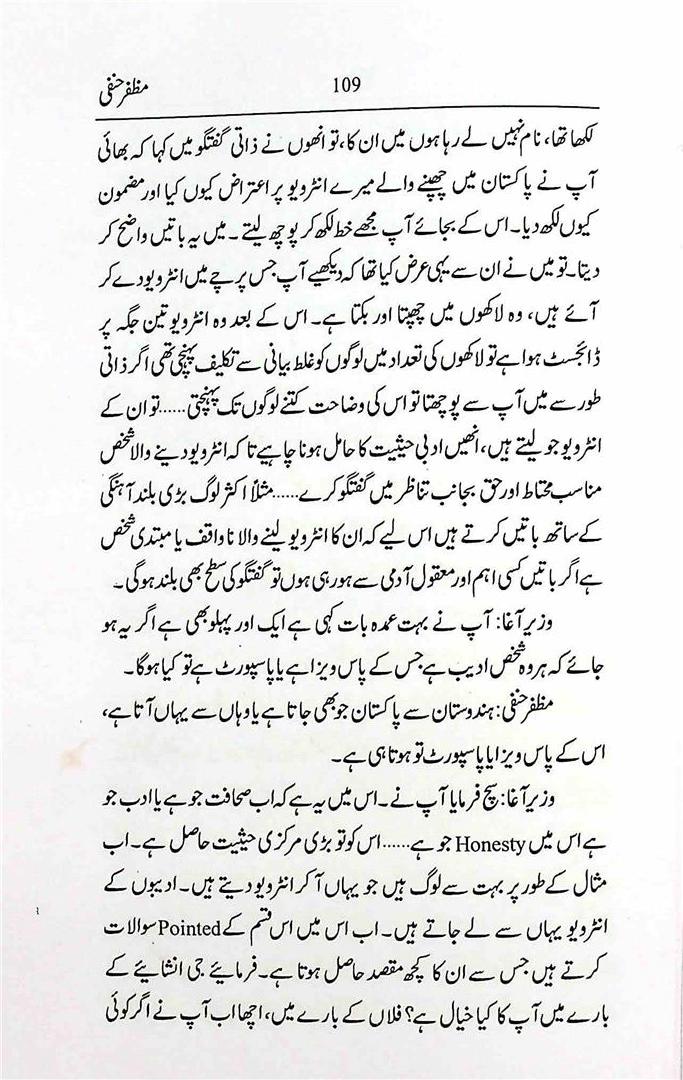 مظفر حنفی 109
لکھا تھا، نام نہیں لے رہا ہوں میں ان کا، تو انھوں نے ذاتی گفتگو میں کہا کہ بھائی
آپ نے پاکستان میں چھپنے والے میرے انٹرویو پر اعتراض کیوں کیا اور مضمون
کیوں لکھ دیا۔ اس کے بجائے آپ مجھے خط لکھ کر پوچھ لیتے۔ میں یہ باتیں واضح کر
دیتا۔ تو میں نے ان سے یہی عرض کیا تھا کہ دیکھیے آپ جس پرچے میں انٹرویو دے کر
آئے ہیں، وہ لاکھوں میں چھپتا اور بکتا ہے۔ اس کے بعد وہ انٹرویو تین جگہ پر
ڈائجسٹ ہوا ہے تو لاکھوں کی تعداد میں لوگوں کو غلط بیانی سے تکلیف پہنچی تھی اگر ذاتی
طور سے میں آپ سے پوچھتا تو اس کی وضاحت کتنے لوگوں تک پہنچتی...... تو ان کے
انٹرویو جو لیتے ہیں، انھیں ادبی حیثیت کا حامل ہونا چاہیے تاکہ انٹرویو دینے والا شخص
مناسب محتاط اور حق بجانب تناظر میں گفتگو کرے...... مثلاً اکثر لوگ بڑی بلند آہنگی
کے ساتھ باتیں کرتے ہیں اس لیے کہ ان کا انٹرویو لینے والا ناواقف یا مبتدی شخص
ہے اگر باتیں کسی اہم اور معقول آدمی سے ہو رہی ہوں تو گفتگو کی سطح بھی بلند ہوگی۔
وزیر آغا: آپ نے بہت عمدہ بات کہی ہے ایک اور پہلو بھی ہے اگر یہ ہو
جائے کہ ہر وہ شخص ادیب ہے جس کے پاس ویزا ہے یا پاسپورٹ ہے تو کیا ہوگا۔
مظفر حنفی: ہندوستان سے پاکستان جو بھی جاتا ہے یا وہاں سے یہاں آتا ہے،
اس کے پاس ویزا یا پاسپورٹ تو ہوتا ہی ہے۔
وزیر آغا: سچ فرمایا آپ نے۔ اس میں یہ ہے کہ اب صحافت جو ہے یا ادب جو
ہے اس میں Honesty جو ہے...... اس کو تو بڑی مرکزی حیثیت حاصل ہے۔ اب
مثال کے طور پر بہت سے لوگ ہیں جو یہاں آ کر انٹرویو دیتے ہیں۔ ادیبوں کے
انٹرویو یہاں سے لے جاتے ہیں۔ اب اس میں اس قسم کے Pointed سوالات
کرتے ہیں جس سے ان کا کچھ مقصد حاصل ہوتا ہے۔ فرمائیے جی انشائیے کے
بارے میں آپ کا کیا خیال ہے؟ فلاں کے بارے میں، اچھا اب آپ نے اگر کوئی